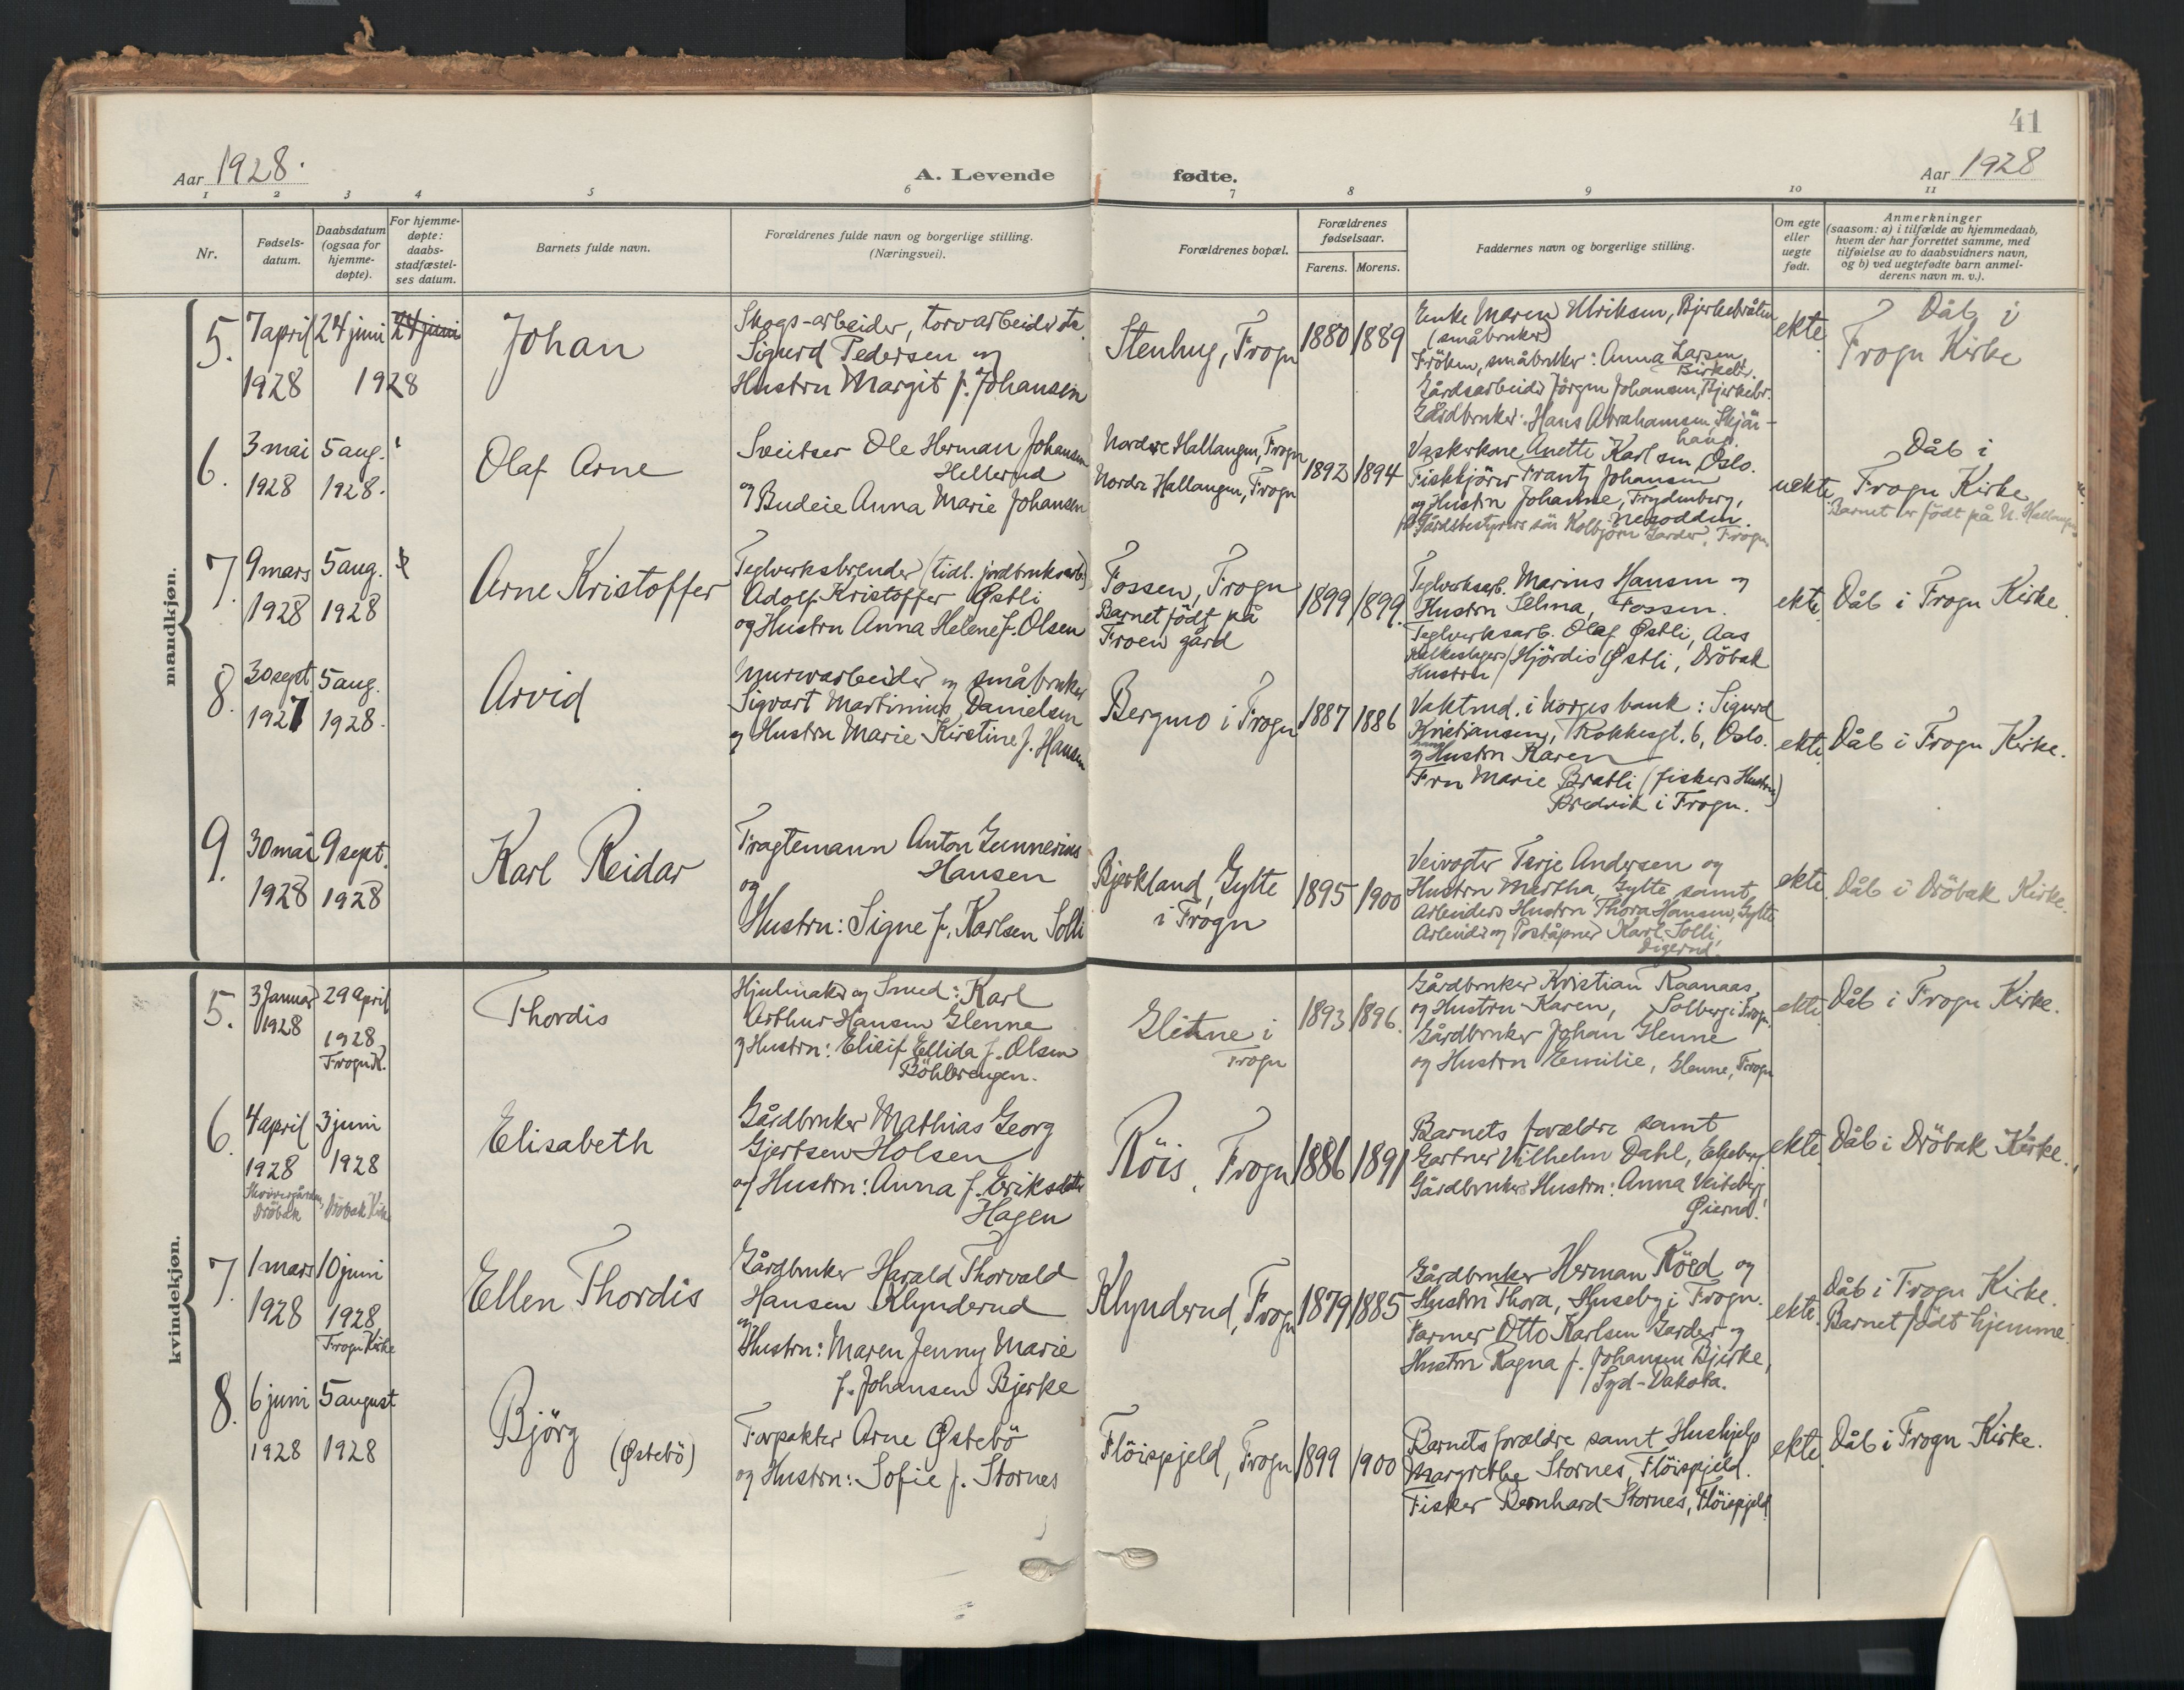 41
Aar 1928. A. Levende fødte. Aar 1928
1 2 3 4 5 6 7 8 9 10 11
Nr.
Fødsels-
datum.
Daabsdatum
(ogsaa for
hjemme-
døpte).
For hjemme-
døpte:
daabs-
stadfæstel-
ses datum.
Barnets fulde navn.
Forældrenes fulde navn og borgerlige stilling.
(Næringsvei).
Forældrenes bopæl.
Forældrenes
fødselsaar.
Farens. Morens.
Faddernes navn og borgerlige stilling.
Om egte
eller
uegte
født.
Anmerkninger
(saasom: a) i tilfælde av hjemmedaab,
hvem der har forrettet samme, med
tilføielse av to daabsvidners navn,
og b) ved uegtefødte barn anmel-
derens navn m. v.).
mandkjøn.
5.
7 april
1928
24 juni
1928
24 juni
Johan
Skogs-arbeider, torvarbeider etc
Sigurd Pedersen og
Hustru Margit f. Johansen
Stenhug, Frogn
1880
1889
Enke Maren Ulriksen, Bjerkebråten
(småbruker)
Fröken, småbruker: Anna Larsen,
Birkebr.
Gårdsarbeider Jörgen Johansen, Bjerkebr.
Gårdbruker: Hans Abrahamsen Skjær-
haug.
ekte
Dåb i
Frogn Kirke
6.
3 mai
1928
5 aug.
1928.
Olaf Arne
Sveitser Ole Herman Johansen
Hellerud
og Budeie Anna Marie Johansen
Nordre Hallangen, Frogn
Nordre Hallangen, Frogn
1892
1894
Vaskerkone Anette Karlsen, Oslo.
Fiskkjörer Frantz Johansen
og Hustru Johanne, Frydenberg,
Nesoddin.
Gårdsbestyrers sön Kolbjörn Garder, Frogn.
uekte
Dåb i
Frogn Kirke
Barnet er födt på N. Hallangen
7.
9 mars
1928
5 aug.
1928
Arne Kristoffer
Teglverksbrender (tidl. jordbruksarb.)
Adolf Kristoffer Østli
og Hustru Anna Helene f. Olsen
Fossen, Frogn
Barnet födt på
Froen gård
1899
1899.
Teglverksarb. Marius Hansen og
Hustru Selma, Fossen.
Teglverksarb. Olaf Østli, Aas
Hjördis Østli, Dröbak
Hustru
ekte
Dåb i Frogn Kirke.
8.
30 sept
1927
5 aug.
1928.
Arvid
Murerarbeider og småbruker
Sigvart Martinius Danielsen
og Hustru Marie Kirstine f. Hansen
Bergmo i Frogn
1887
1886
Vaktmd. i Norges bank: Sigurd
Kristiansen, Rokkesgt. 6, Oslo.
og Hustru Karen
Fru Marie Bratli (fiskers Hustru)
Bredvik i Frogn.
ekte
Dåb i Frogn Kirke.
9.
30 mai
1928
9 sept.
1928
Karl Reidar
Fragtemann Anton Gunnerius
Hansen
og
Hustru: Signe f. Karlsen Solli
Bjerkland, Gylte
i Frogn
1895
1900
Veivogter Terje Andersen og
Hustru Martha, Gylte samt
Arbeiders Hustru Thora Hansen, Gylte
Arbeider og Poståpner Karl Solli,
Digerud.
ekte
Dåb i Dröbak Kirke.
kvindekjøn.
5.
3 Januar
1928
29 april
1928
Frogn K.
Thordis
Hjulmaker og Smed: Karl
Arthur Hansen Glenne
og Hustru: Elieif Ellida f. Olsen
Böhlerengen.
Glenne i
Frogn
1893
1896.
Gårdbruker Kristian Raanaas,
og Hustru Karen, Solberg i Frogn.
Gårdbruker Johan Glenne
og Hustru Emilie, Glenne, Frogn
ekte
Dåb i Frogn Kirke.
6.
4 april
1928
Dröbak
3 juni
1928
Dröbak Kirke
Elisabeth
Gårdbruker Mathias Georg
Gjertsen Holsen
og Hustru: Anna f. Eriksdatter
Hagen
Röis, Frogn
1886
1891
Barnets forældre samt
Gartner Vilhelm Dahl, Elgeberg.
Gårdbrukers Hustru: Anna Veiteberg,
Øierud.
ekte
Dåb i Dröbak Kirke.
7.
1 mars
1928
10 juni
1928,
Frogn Kirke
Ellen Thordis
Gårdbruker Harald Thorvald
Hansen Klynderud
og
Hustru: Maren Jenny Marie
f. Johansen Bjerke
Klynderud, Frogn
1879
1885
Gårdbruker Herman Röed og
Hustru Thora, Huseby i Frogn.
Farmer Otto Karlsen Garder og
Hustru Ragna f. Johansen Bjerke,
Syd-Dakota.
ekte
Dåb i Frogn Kirke.
Barnet födt hjemme.
8.
6 juni
1928
5 august
1928
Björg (Østebö)
Forpakter Arne Østebö
og Hustru: Sofie f. Stornes
Flöispjeld, Frogn
1899
1900
Barnets forældre samt Hushjelp
Margrethe Stornes, Flöispjeld.
Fisker Bernhard Stornes, Flöispjeld
ekte
Dåb i Frogn Kirke.